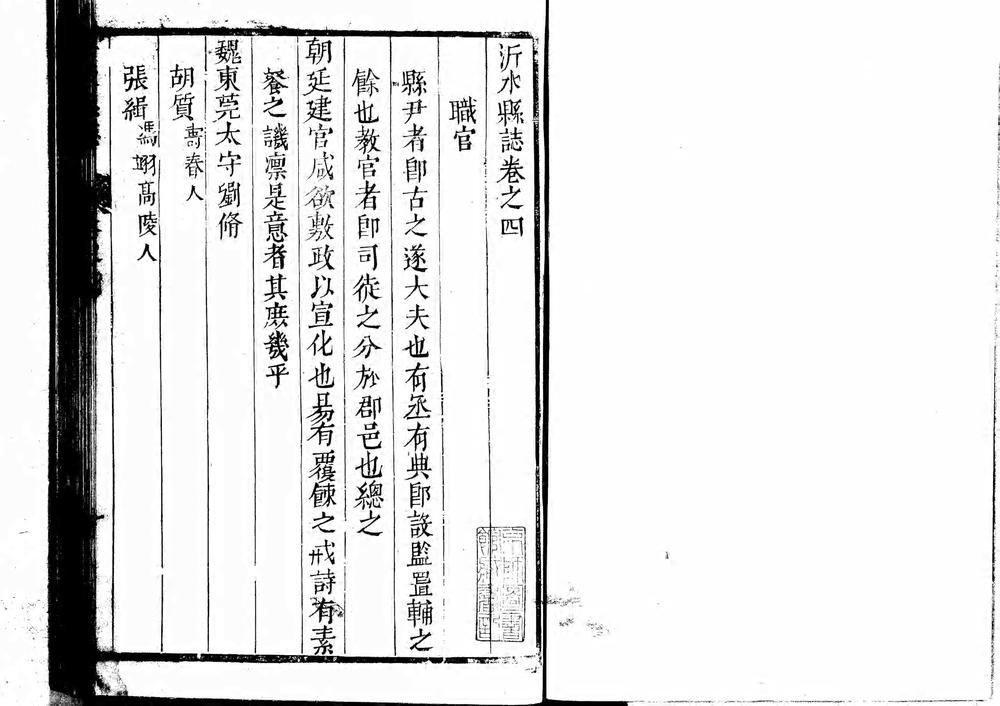 沂水縣誌卷之四
職官
縣尹者卽古之遂大夫也有丞有典卽設監置輔之
餘也教官者卽司徒之分於郡邑也總之
朝廷建官咸欲敷政以宣化也易有覆餗之戒詩有素
餐之譏凛是意者其庶幾乎
魏東莞太守劉脩
胡質壽春人
張緝馮翊高陵人
京師圖書